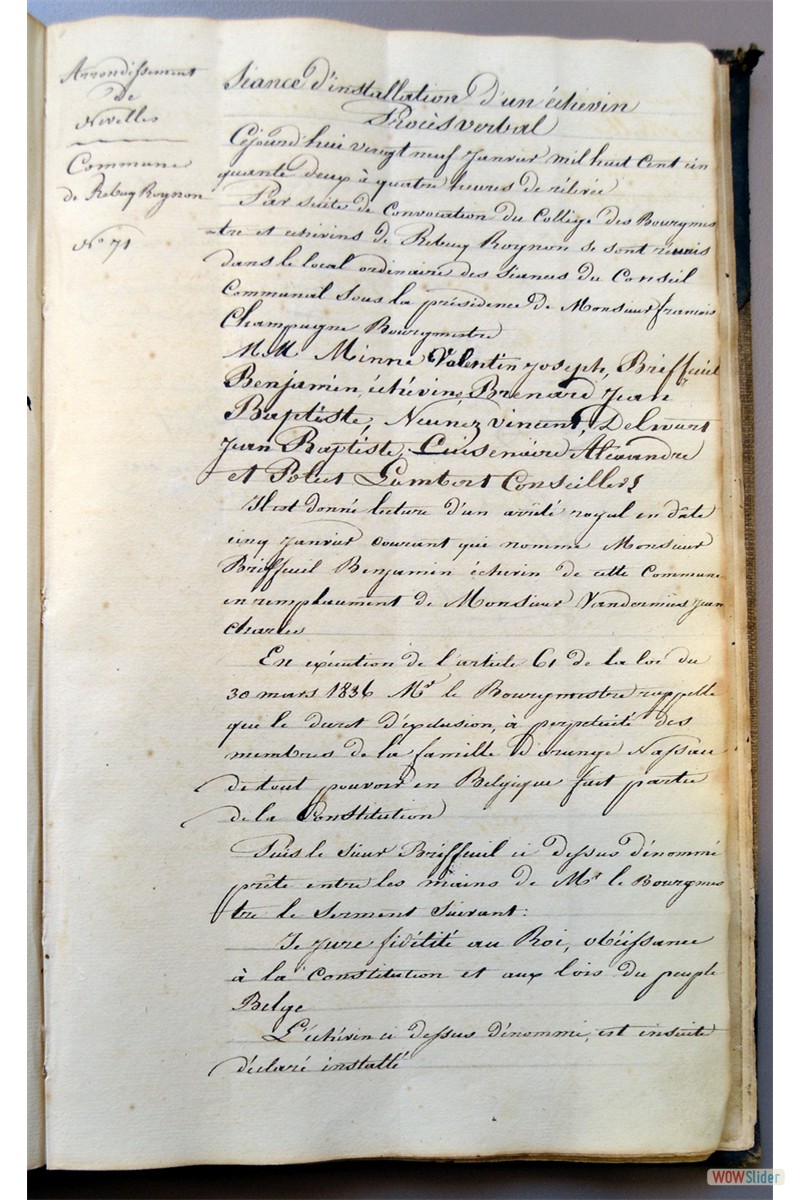 Arrondissement
de
Nivelles
Commune
de Rebecq Rognon
N° 71
Séance d'installation d'un échevin
Procès verbal
Cejourd'hui vingt neuf Janvier mil huit cent cin
quante deux à quatre heures de rélevée
Par suite de Convocation du Collège des Bourgmes
-tre et échevins de Rebecq Rognon se sont réunis
dans le local ordinaire des séances du Conseil
Communal sous la présidence de Monsieur francois
Champagne Bourgmestre
M.M. Minne Valentin Joseph, Briffeuil
Benjamin, échévins, Brenard Jean
Baptiste, Neunez Vincent, Delwart
Jean Baptiste, Cuisenaire Alexandre
et Polet Lambert Conseillers
Il est donné lecture d'un arrêté royal en date
cinq Janvier courant qui nomme Monsieur
Briffeuil Benjamin échevin de cette Commune
en remplacement de Monsieur Jean
Charles
En exécution de l'article 61 de la loi du
30 mars 1836 Mr le Bourgmestre rappelle
que le decret d'exclusion, à perpétuité des
membres de la famille d'orange Nassau
de tout pouvoir en Belgique fait partie
de la Constitution
Puis le sieur Briffeuil ci dessus dénommé
prête entre les mains de Mr le Bourgmes
tre le serment suivant:
Je jure fidélité au Roi, obéissance
à la Constitution et aux lois du peuple
Belge
L'échévin ci dessus dénommé, est ensuite
déclaré installé
WOWSlider